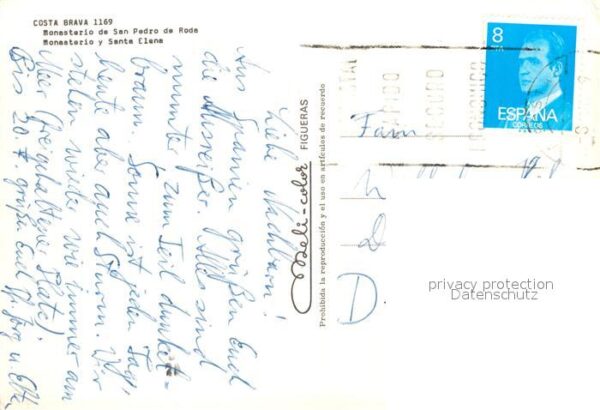 COSTA BRAVA 1169
Monasterio de San Pedro de Roda
Monasterio y Santa Elena
Liebe Nachbarn!
Aus Spanien grüßen Euch
die Ausreißer. Alle sind
munter, zum Teil dunkel-
braun. Sonne ist jeden Tag,
heute aber auch Sturm. Wir
stehen wieder wie immer am
Meer (freigehaltene Plätze)
Bis 20. grüßen Euch u.
Meli-color FIGUERAS
Prohibida la reproducción y el uso en artículos de recuerdo
8 PTA
ESPAÑA
CORREOS
Fam
D
privacy protection
Datenschutz